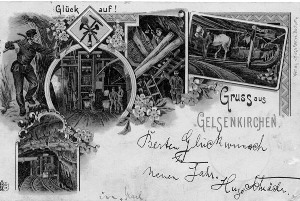 Glück auf!
Gruss aus
GELSENKIRCHEN.
Besten Glückwunsch
neuen Jahr.
Hugo